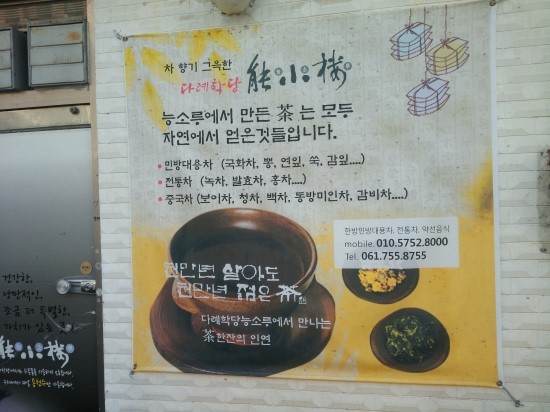 차 향기 그윽한
다례학당 能小樓
능소루에서 만든 茶 는 모두
자연에서 얻은것들입니다.
● 민방대용차 (국화차, 뽕, 연잎, 쑥, 감잎....)
● 전통차 (녹차, 발효차, 홍차....)
● 중국차 (보이차, 청차, 백차, 동방미인차, 감비차....)
한방민방대용차, 전통차, 약선음식
mobile. 010.5752.8000
Tel. 061.755.8755
천만년 살아도
천만년 젊은 茶
다례학당능소루에서 만나는
茶한잔의 인연
건강한,
낭만적인,
조금 더 특별한,
가치가 있는
能小樓